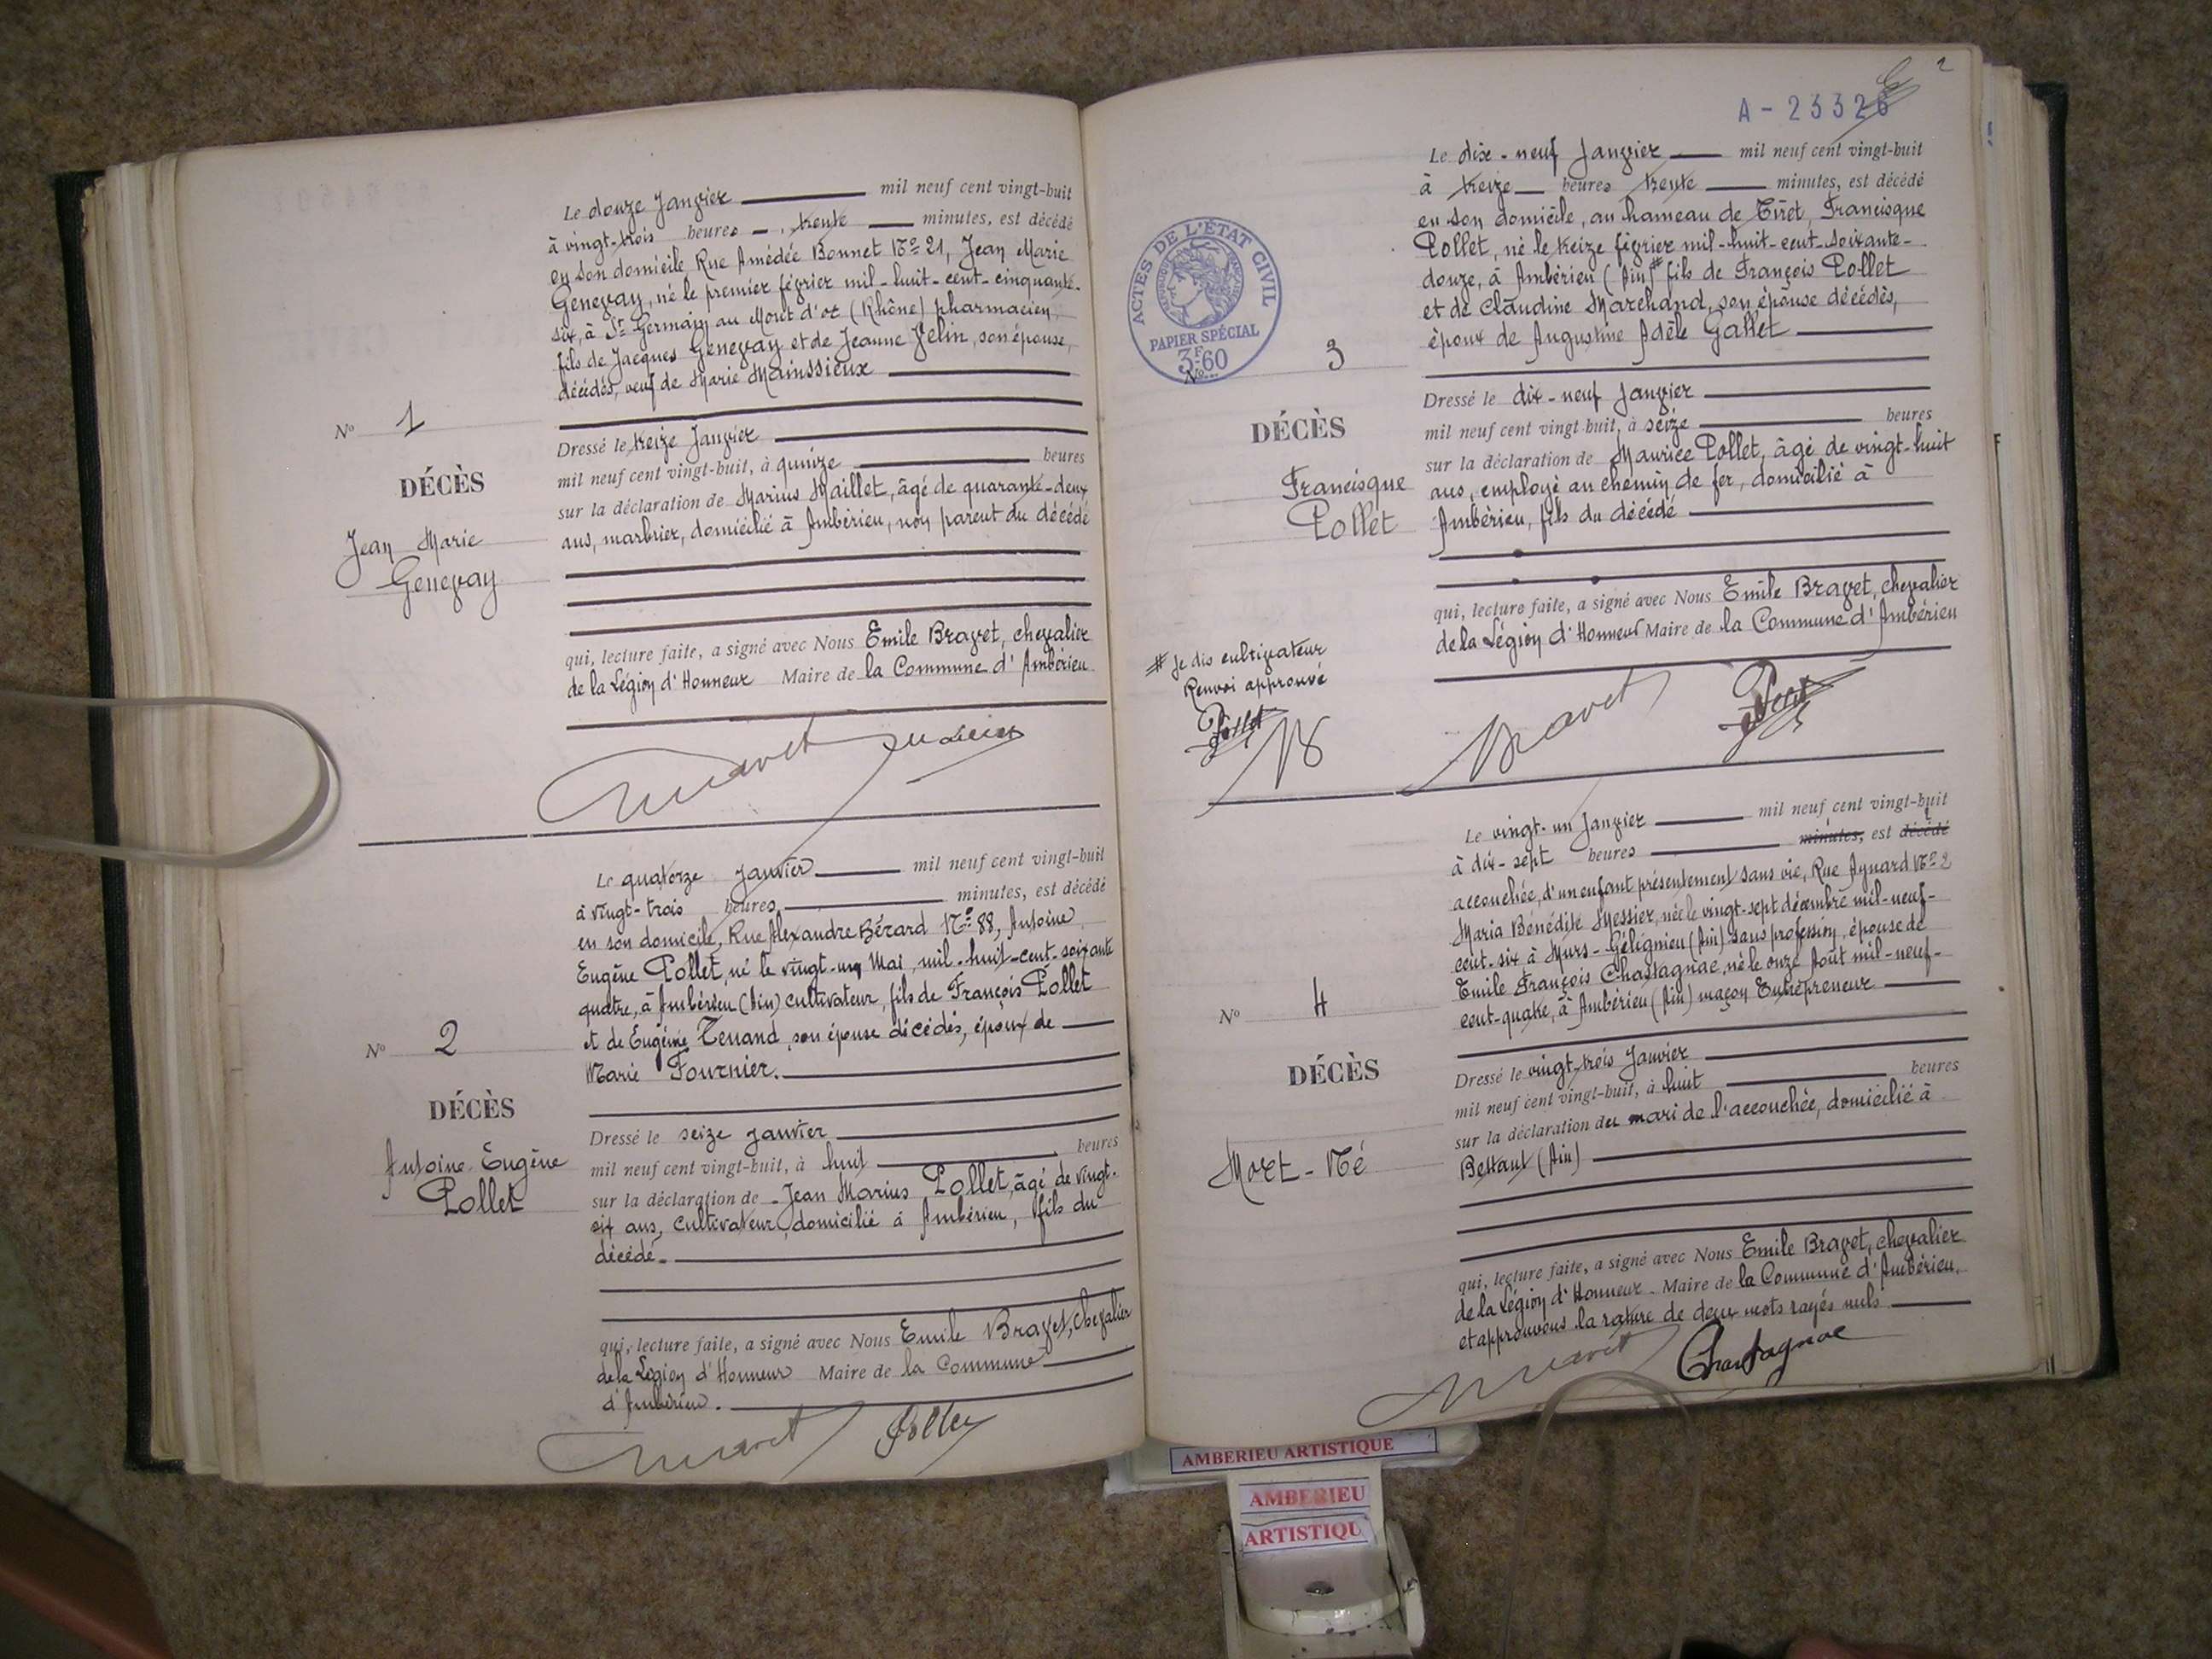 Le douze Janvier mil neuf cent vingt-huit
à vingt-trois heures trente minutes, est décédé
en son domicile Rue Amédée Bonnet No 21, Jean Marie
Genevay, né le premier février mil-huit-cent-cinquante-
six, à St Germain au Mont d'or (Rhône) pharmacien,
fils de Jacques Genevay et de Jeanne Jelin, son épouse,
décédés, veuf de Marie Mainssieux
No 1
Dressé le treize Janvier
mil neuf cent vingt-huit, à quinze heures
DÉCÈS
sur la déclaration de Marius Maillet, âgé de quarante-deux
ans, marbrier, domicilié à Ambérieu, non parent du décédé
Jean Marie
Genevay
qui, lecture faite, a signé avec Nous Emile Bravet, chevalier
de la Légion d'Honneur Maire de la Commune d'Ambérieu
Le quatorze janvier mil neuf cent vingt-huit
à vingt-trois heures minutes, est décédé
en son domicile, Rue Alexandre Bérard No 88, Antoine
Eugène Pollet, né le vingt-un Mai, mil-huit-cent-soixante
quatre, à Ambérieu (Ain) cultivateur, fils de François Pollet
et de Eugénie Tenand, son épouse décédés, époux de
Marie Fournier.
No 2
DÉCÈS
Dressé le seize janvier
mil neuf cent vingt-huit, à huit heures
Antoine Eugène
Pollet
sur la déclaration de Jean Marius Pollet, âgé de vingt-
six ans, cultivateur, domicilié à Ambérieu, fils du
décédé.
qui, lecture faite, a signé avec Nous Emile Bravet, chevalier
de la Légion d'Honneur Maire de la Commune
d'Ambérieu.
Pollet
2
A - 23326
ACTES DE L'ÉTAT CIVIL
RÉPUBLIQUE FRANÇAISE
PAPIER SPÉCIAL
3F60
Le dix-neuf Janvier mil neuf cent vingt-huit
à treize heures trente minutes, est décédé
en son domicile, au hameau de Tiret, Francisque
Pollet, né le treize février mil-huit-cent-soixante-
douze, à Ambérieu (Ain) # fils de François Pollet
et de Claudine Marchand, son épouse décédés,
époux de Augustine Adèle Gallet
No 3
Dressé le dix-neuf Janvier
DÉCÈS
mil neuf cent vingt-huit, à seize heures
sur la déclaration de Maurice Pollet, âgé de vingt-huit
Francisque
Pollet
ans, employé au chemin de fer, domicilié à
Ambérieu, fils du décédé
qui, lecture faite, a signé avec Nous Emile Bravet, chevalier
de la Légion d'Honneur Maire de la Commune d'Ambérieu
# Je dis cultivateur
Renvoi approuvé
Pollet
Bravet
Le vingt-un Janvier mil neuf cent vingt-huit
à dix-sept heures minutes, est décédé
accouchée, d'un enfant présentement sans vie, Rue Aynard No 2
Maria Bénédite Messier, née le vingt-sept décembre mil-neuf-
cent-six à Murs-Gélignieu (Ain) sans profession, épouse de
Emile François Chastagnac, né le onze Août mil-neuf-
cent-quatre, à Ambérieu (Ain) maçon Entrepreneur
No 4
DÉCÈS
Dressé le vingt-trois Janvier
mil neuf cent vingt-huit, à huit heures
sur la déclaration du mari de l'accouchée, domicilié à
Bettant (Ain)
Mort-Né
qui, lecture faite, a signé avec Nous Emile Bravet, chevalier
de la Légion d'Honneur Maire de la Commune d'Ambérieu,
et approuvons la rature de deux mots rayés nuls
Chastagnac
AMBERIEU ARTISTIQUE
AMBERIEU
ARTISTIQU